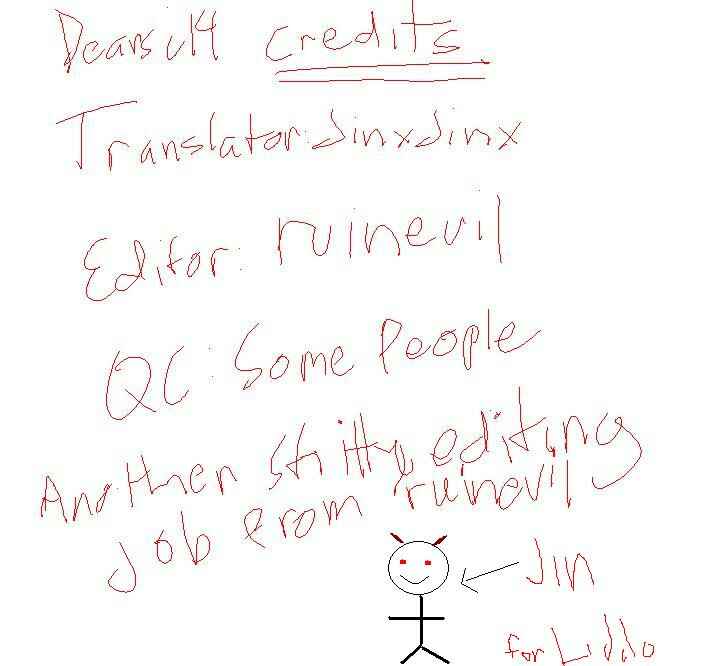 Dears v14 credits
Translator: Jinxdinx
Editor: ruinevil
QC: Some People
Another shitty editing
job from ruinevil
Jin
for Liddo